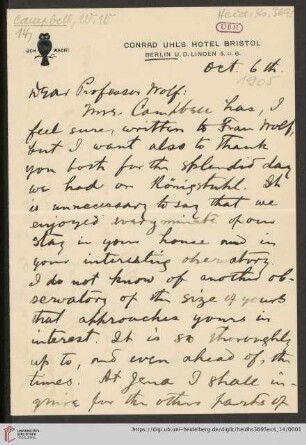 Campbell, W. W.
UHU WACHT
CONRAD UHL'S HOTEL BRISTOL
BERLIN U. D. LINDEN 5. U. 6.
Oct. 6th.
1905
Dear Professor Wolf:
Mrs. Campbell has, I
feel sure, written to Frau Wolf,
but I want also to thank
you both for the splendid day
we had on Königstuhl. It
is unnecessary to say that we
enjoyed every minute of our
stay in your house and in
your interesting observatory.
I do not know of another ob-
servatory of the size of yours
that approaches yours in
interest. It is so thoroughly
up to, and even ahead of, the
times. At Jena I shall in-
quire for the other parts of
UNIVERSITÄTS-
BIBLIOTHEK
HEIDELBERG
https://digi.ub.uni-heidelberg.de/diglit/heidhs3695ecd_14/0001